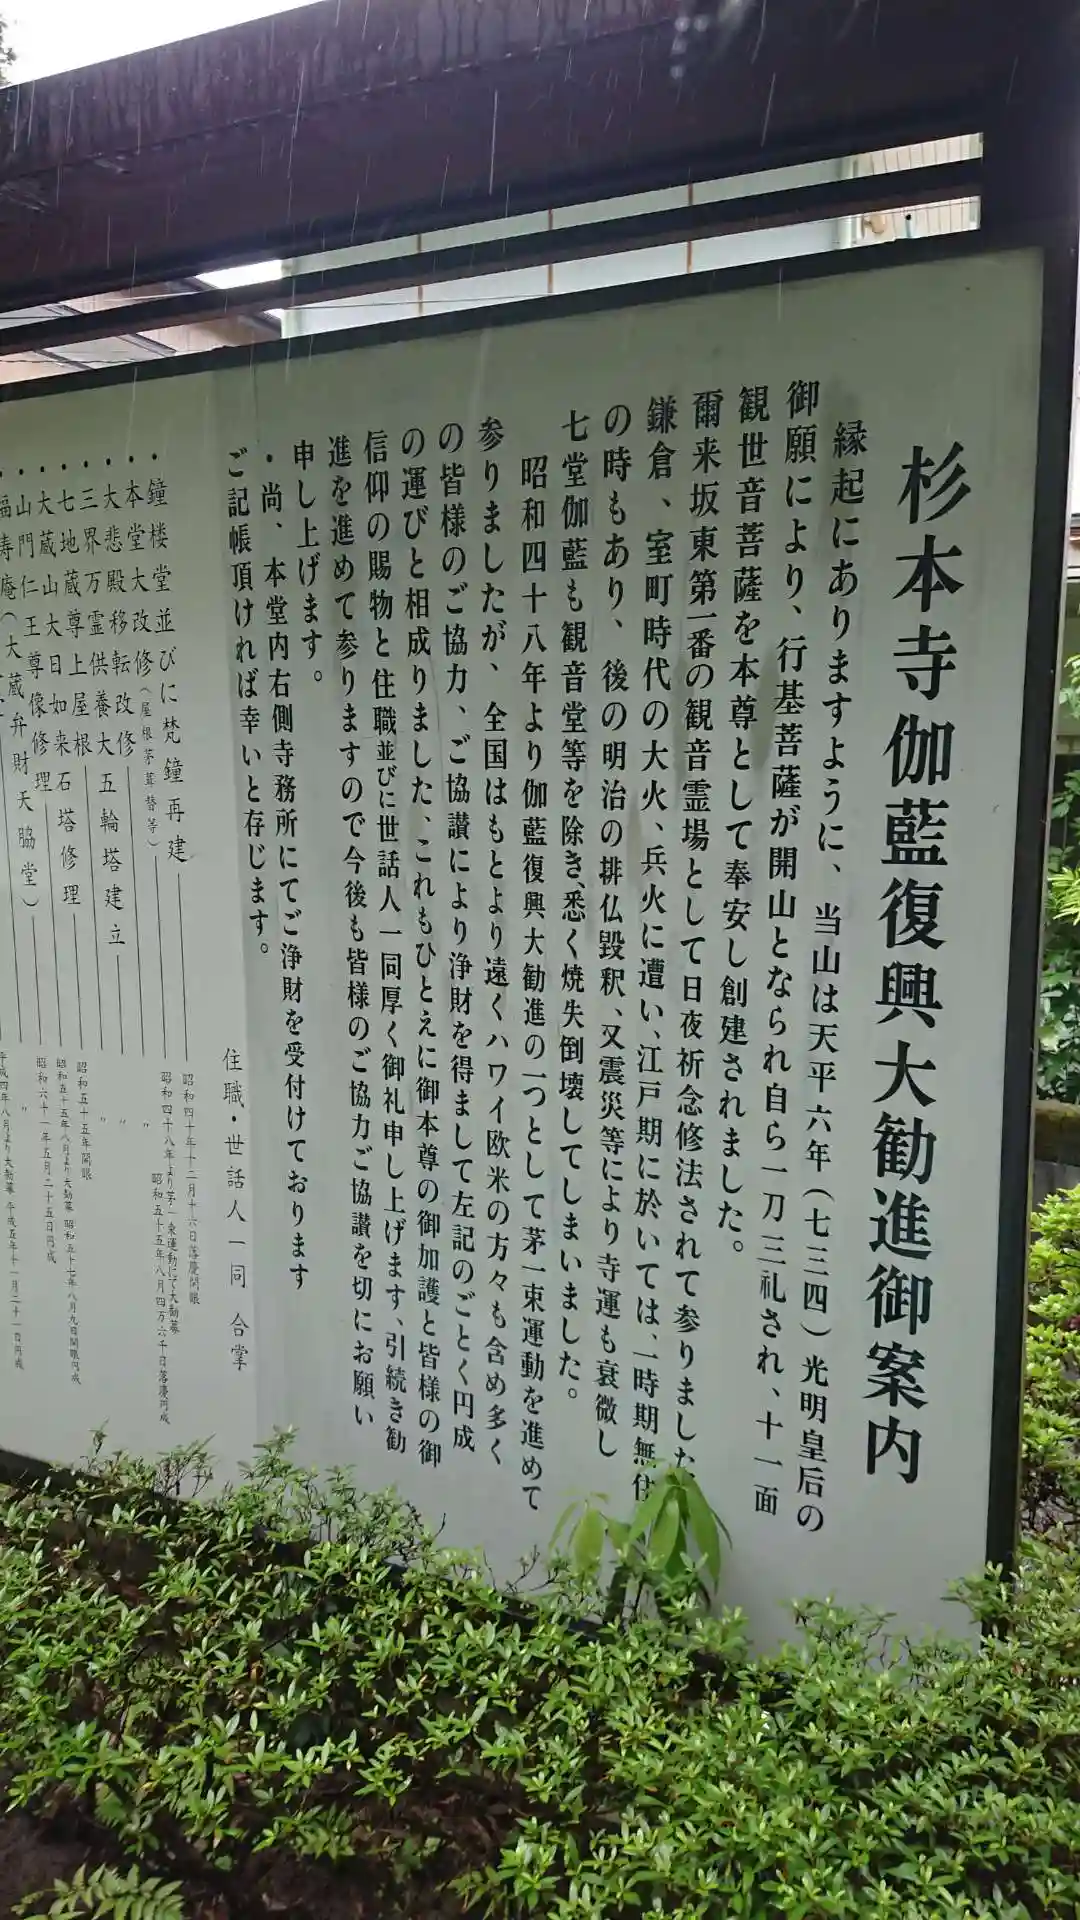 杉本寺伽藍復興大勧進御案内
縁起にありますように、当山は天平六年(七三四)光明皇后の
御願により、行基菩薩が開山となられ自ら一刀三礼され、十一面
観世音菩薩を本尊として奉安し創建されました。
爾来坂東第一番の観音霊場として日夜祈念修法されて参りました
鎌倉、室町時代の大火、兵火に遭い、江戸期に於いては、一時期無住
の時もあり、後の明治の排仏毀釈、又震災等により寺運も衰微し
七堂伽藍も観音堂等を除き、悉く焼失倒壊してしまいました。
昭和四十八年より伽藍復興大勧進の一つとして茅一束運動を進めて
参りましたが、全国はもとより遠くハワイ欧米の方々も含め多く
の皆様のご協力、ご協讃により浄財を得まして左記のごとく円成
の運びと相成りました、これもひとえに御本尊の御加護と皆様の御
信仰の賜物と住職並びに世話人一同厚く御礼申し上げます、引続き勧
進を進めて参りますので今後も皆様のご協力ご協讃を切にお願い
申し上げます。
・尚、本堂内右側寺務所にてご浄財を受付けております
ご記帳頂ければ幸いと存じます。
住職・世話人一同 合掌
・鐘楼堂並びに梵鐘再建 昭和四十年十二月十六日落慶開眼
・本堂大改修(屋根茅葺替等) 昭和四十八年より茅一束運動にて大勧募
昭和五十五年八月四万六千日落慶円成
・大悲殿移転改修 〃
・三界万霊供養大五輪塔建立 〃
・七地蔵尊上屋根 昭和五十五年開眼
・大蔵山大日如来石塔修理 昭和五十五年八月より大勧募 昭和五十七年八月九日開眼円成
・山門仁王尊像修理 昭和六十一年五月二十五日円成
・福寿庵(大蔵弁財天脇堂) 〃
平成四年八月より大勧募 平成五年十一月二十一日円成